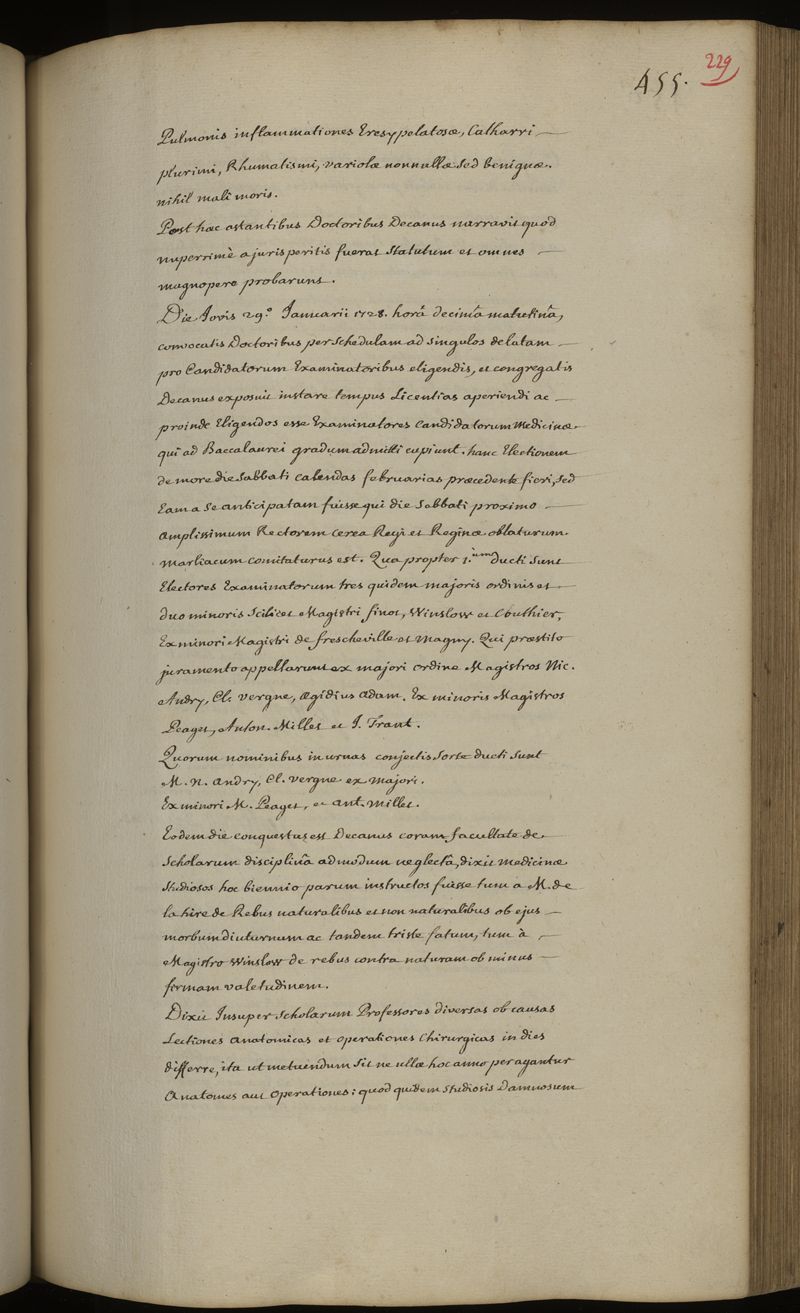 455.
229
Pulmonis inflammationes Eresypelatosæ, Catharri
plurimi, Rhumatismi, variolæ nonnullæ sed benignæ.
nihil mali moris.
Post hac astantibus Doctoribus Decanus narravit quod
nuperrimè a jurisperitis fuerat statutum et omnes
magnopere probarunt.
Die Jovis 29.º Januarii 1728. horâ decimâ matutinâ,
convocatis Doctoribus per schedulam ad singulos delatam
pro Candidatorum Examinatoribus eligendis, et congregatis
Decanus exposuit instare tempus Licentias aperiendi ac
proinde Eligendos esse Examinatores Candidatorum Medicinæ
qui ad Baccalaurei gradum admitti cupiunt. hanc Electionem
de more die Sabbati calendas februarias præcedente fieri, sed
Eam a se anticipatam fuisse qui die Sabbati proximo
amplissimum Rectorem cerea Regi et Reginæ oblaturum
Marliacum comitaturus est. Qua propter 1.um ducti sunt
Electores Examinatorum tres quidem majoris ordinis et
duo minoris Scilicet Magistri finot, Winslow et Couthier,
Ex minori Magistri de frescheville et Magny. Qui præstito
juramento appellarunt ex majori ordine Magistros Nic.
Andry, Cl. Vergne, Ægidius Adam. Ex minoris Magistros
Peaget, Anton. Millet et J. Frant.
Quorum nominibus in urnas conjectis sorte ducti sunt
M. N. Andry, Cl. Vergne ex majori.
Ex minori M. Peaget, et Ant. Millet.
Eodem die conquestus est Decanus coram facultate de
Scholarum disciplinâ admodum neglectâ, dixit Medicinæ
studiosos hoc biennio parum instructos fuisse tum a M. de
la hire de Rebus naturalibus et non naturalibus ob ejus
morbum diuturnum ac tandem triste fatum, tum à
Magistro Winslow de rebus contra naturam ob minus
firmam valetudinem.
Dixit Insuper Scholarum Professores diversas ob causas
Lectiones anatomicas et operationes Chirurgicas in dies
differre, ita ut metuendum sit ne ullæ hoc anno peragantur
Anatomes aut Operationes: quod quidem studiosis Damnosum